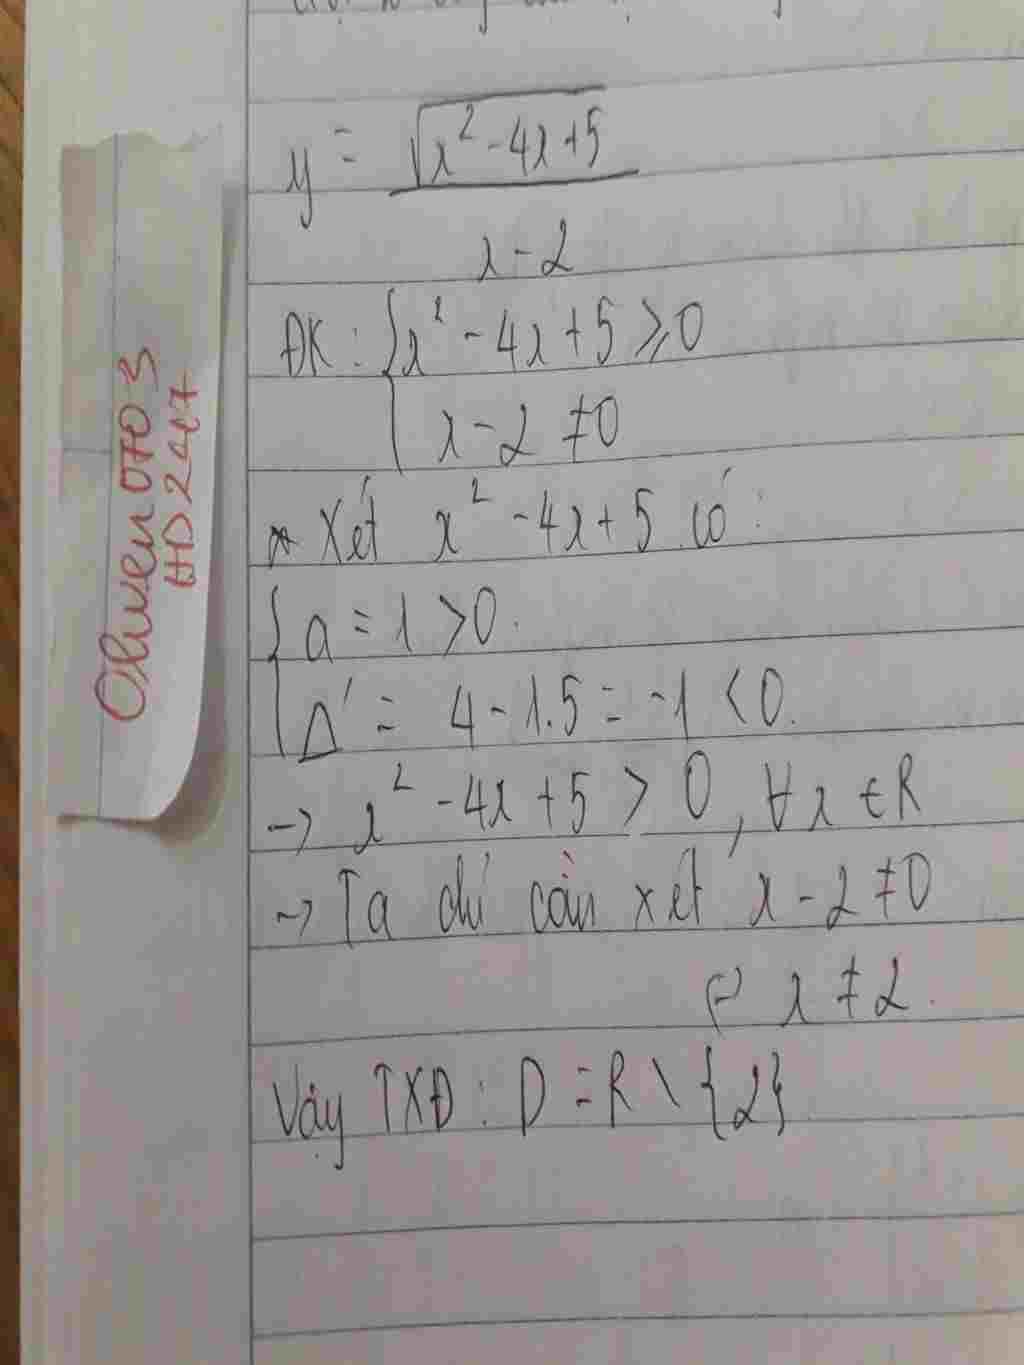 y = √(x² - 4x + 5) / (x - 2)
ĐK: { x² - 4x + 5 ⩾ 0
x - 2 ≠ 0
* Xét x² - 4x + 5 có:
{ a = 1 > 0.
Δ' = 4 - 1.5 = -1 < 0.
→ x² - 4x + 5 > 0, ∀x ∈ R
→ Ta chỉ cần xét x - 2 ≠ 0
⇔ x ≠ 2.
Vậy TXĐ: D = R \ {2}
Oliven0703
HD247